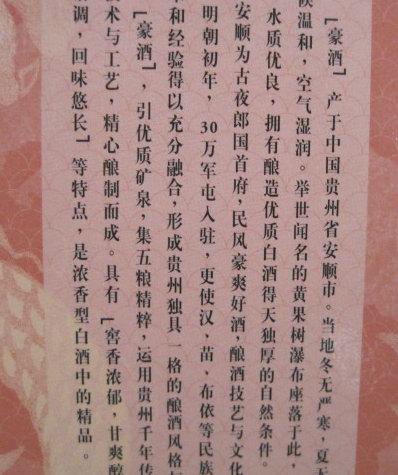 「豪酒」产于中国贵州省安顺市。当地冬无严寒，夏无
候温和，空气湿润。举世闻名的黄果树瀑布座落于此，
水质优良，拥有酿造优质白酒得天独厚的自然条件。
安顺为古夜郎国首府，民风豪爽好酒，酿酒技艺与文化
明朝初年，30万军屯入驻，更使汉、苗、布依等民族
和经验得以充分融合，形成贵州独具一格的酿酒风格与
「豪酒」，引优质矿泉，集五粮精粹，运用贵州千年传
技术与工艺，精心酿制而成。具有「窖香浓郁，甘爽醇
调，回味悠长」等特点，是浓香型白酒中的精品。